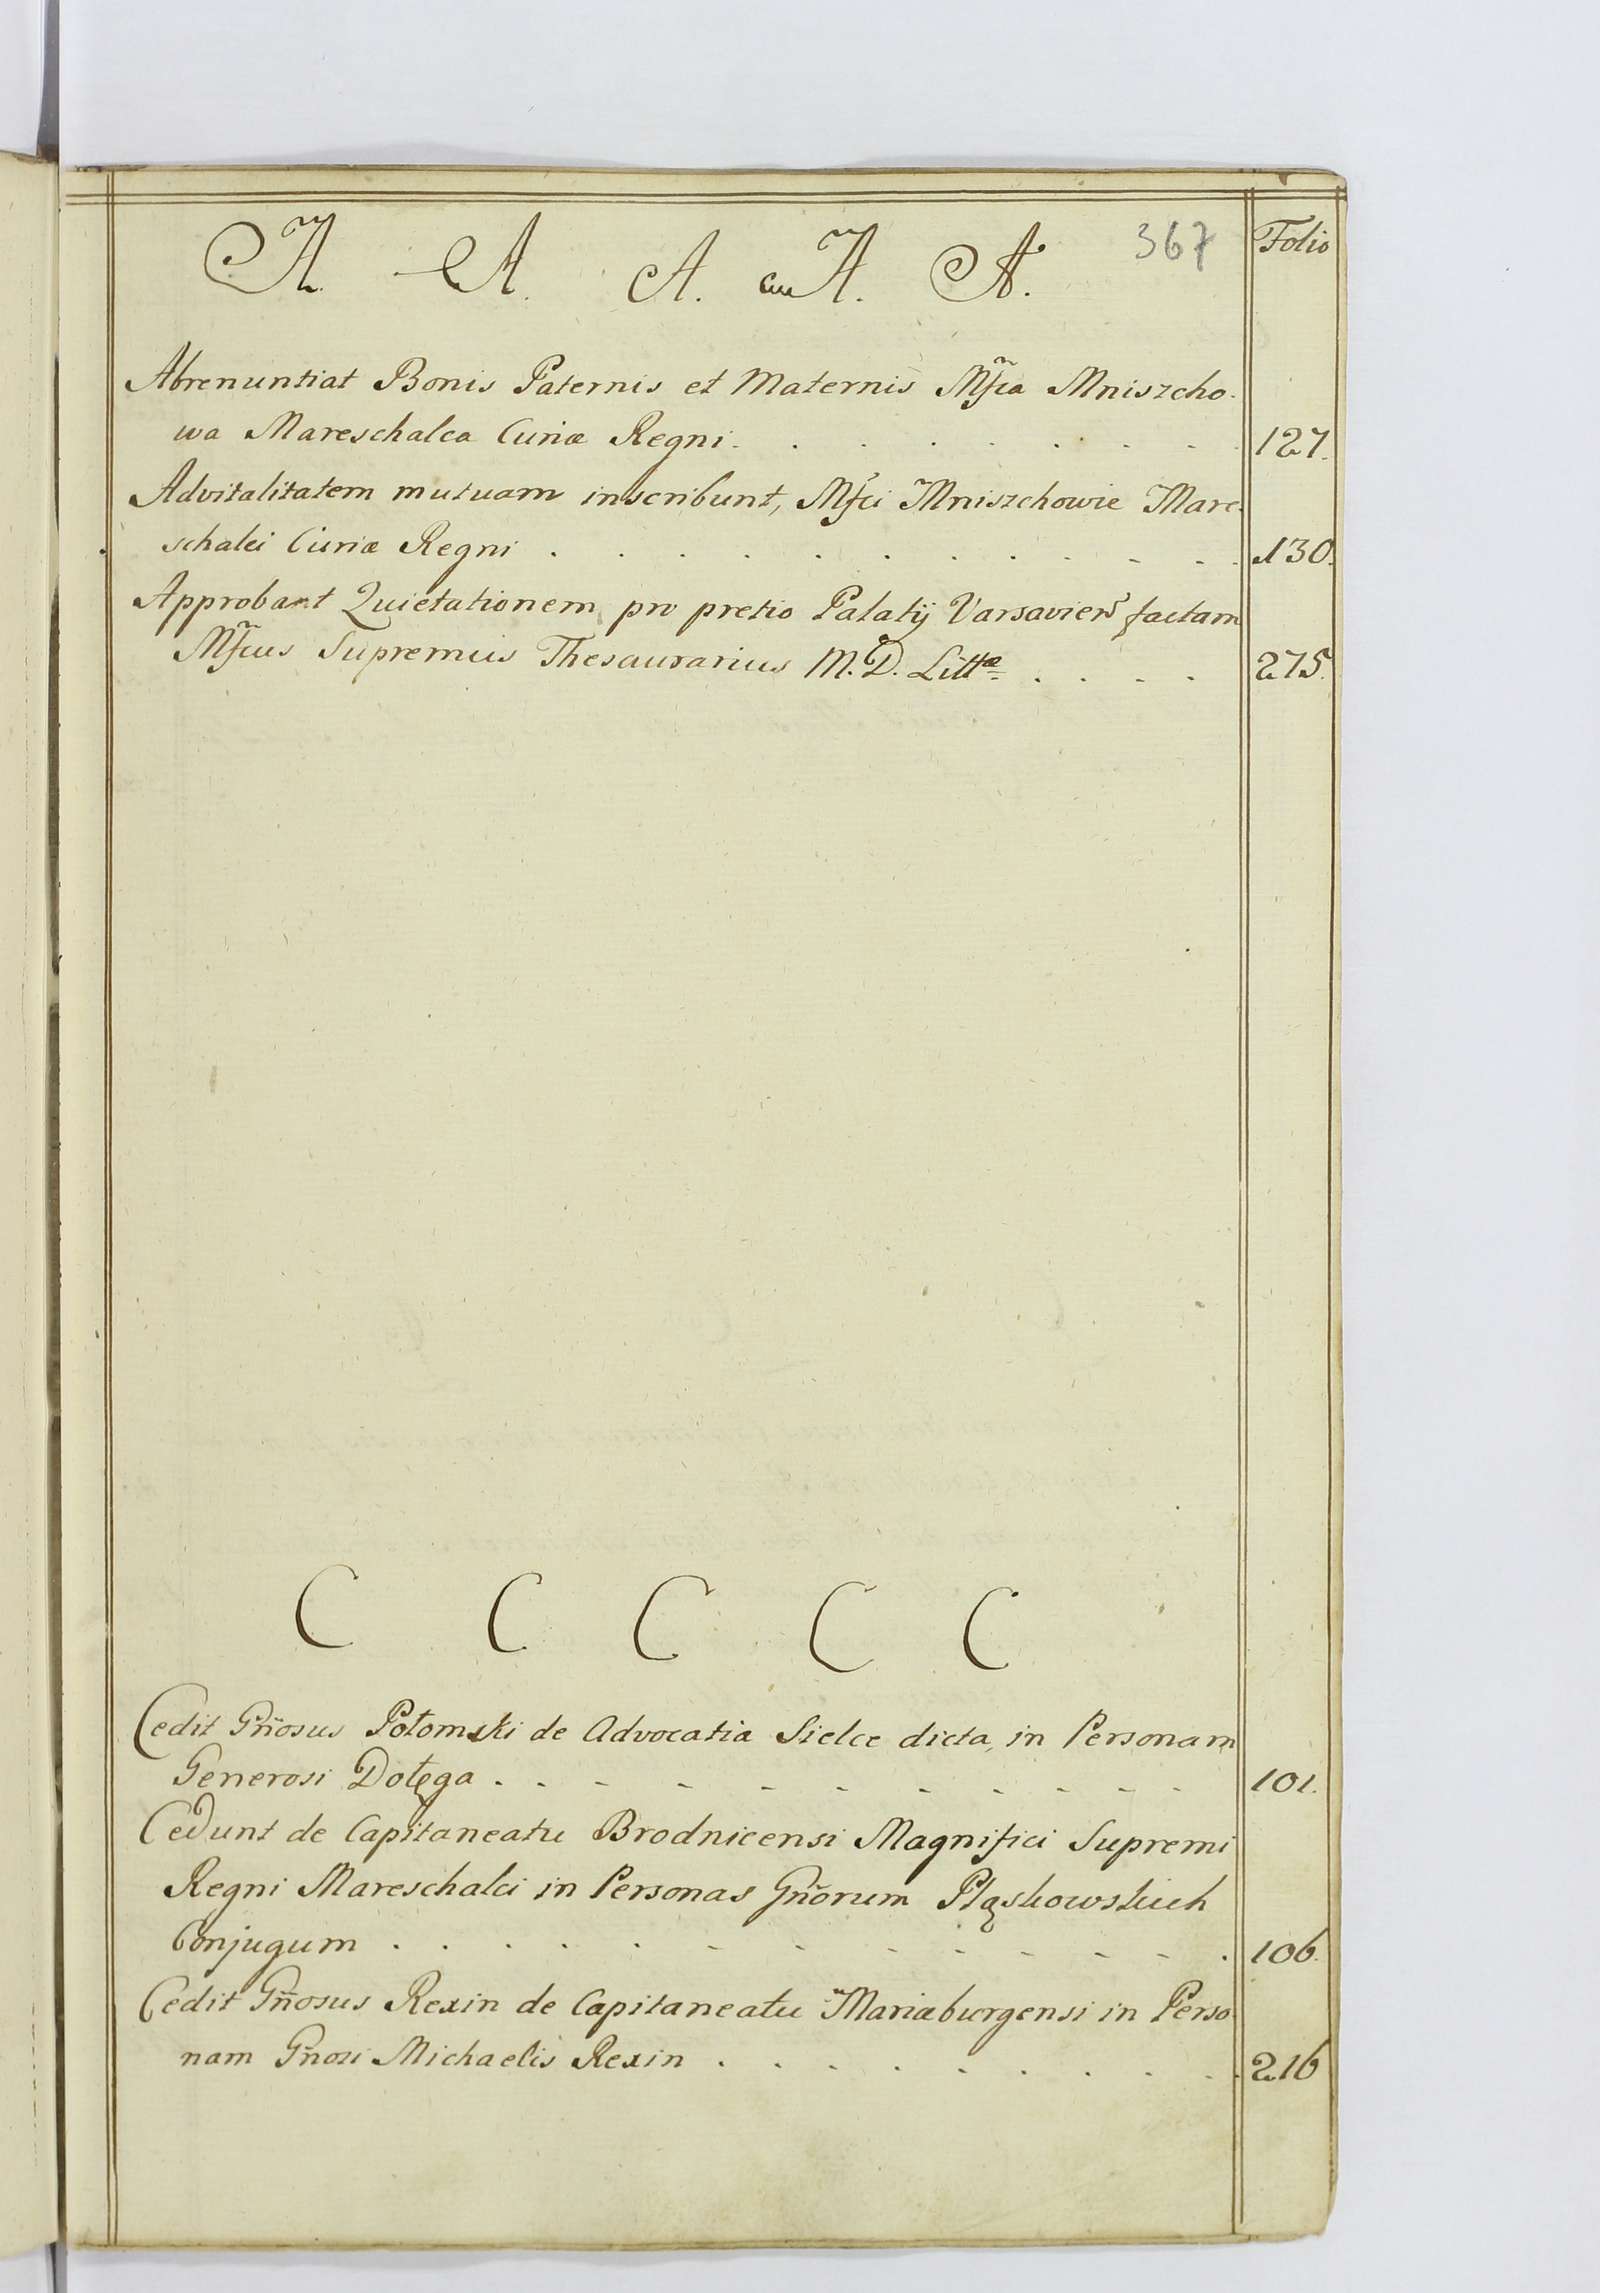 A. A. A. A. A. 367 Folio
Abrenuntiat Bonis Paternis et Maternis Mf̃ca Mniszcho-
wa Mareschalca Curiæ Regni. 127.
Advitalitatem mutuam inscribunt, Mf̃ci Mniszchowie Mare-
schalci Curiæ Regni 130.
Approbant Quietationem pro pretio Palatij Varsavien̄ factam
Mf̃cus Supremus Thesaurarius M. D. Littæ 275.
C C C C C
Cedit Gn̄osus Potomski de Advocatia Sielce dicta, in Personam
Generosi Dotęga 101.
Cedunt de Capitaneatu Brodnicensi Magnifici Supremi
Regni Mareschalci in Personas Gn̄orum Pląskowskich
Conjugum 106.
Cedit Gn̄osus Rexin de Capitaneatu Mariæburgensi in Perso-
nam Gn̄osi Michaelis Rexin 216